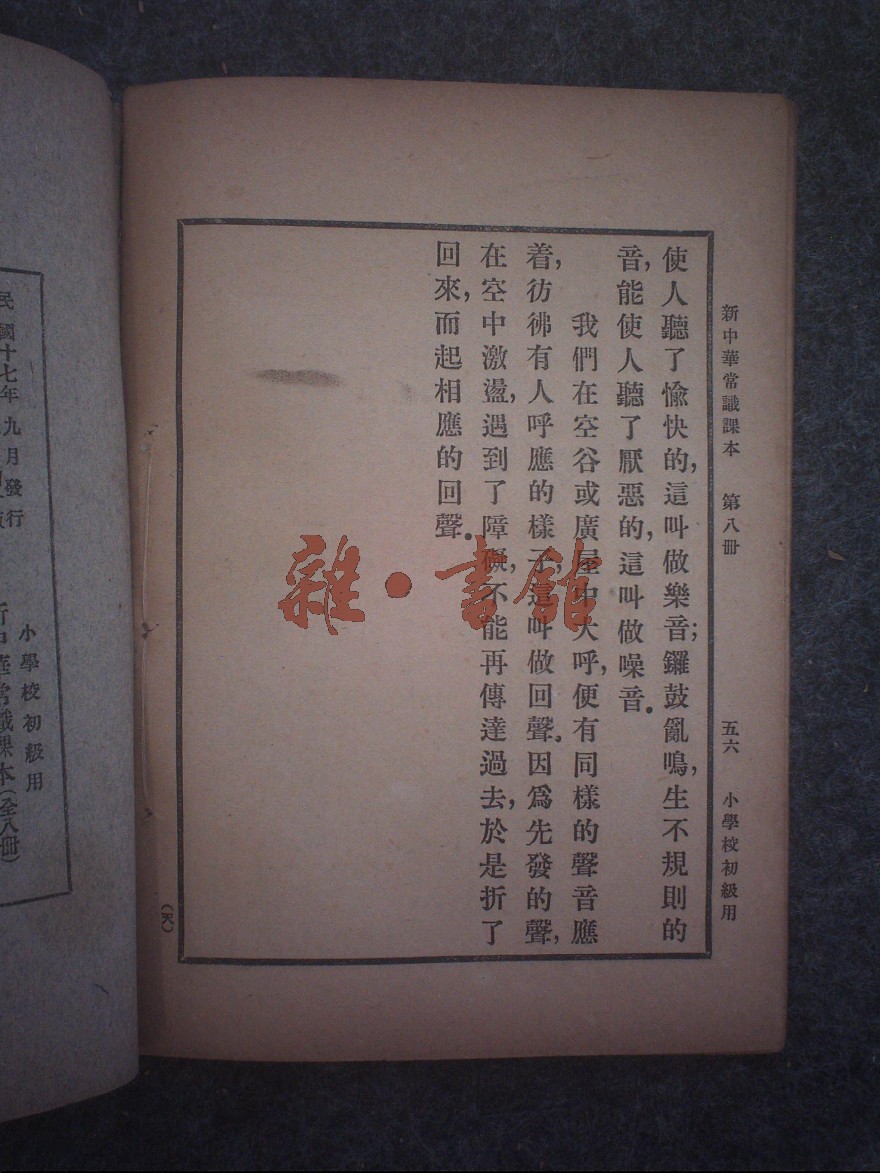 新中華常識課本　第八冊　五六　小學校初級用
使人聽了愉快的,這叫做樂音;鑼鼓亂鳴,生不規則的
音,能使人聽了厭惡的,這叫做噪音。
我們在空谷或廣屋中大呼,便有同樣的聲音應
着,彷彿有人呼應的樣子,這叫做回聲。因爲先發的聲,
在空中激盪,遇到了障礙,不能再傳達過去,於是折了
回來,而起相應的回聲。
雜·書館
小學校初級用
華常識課本(全八冊)
民國十七年九月發行